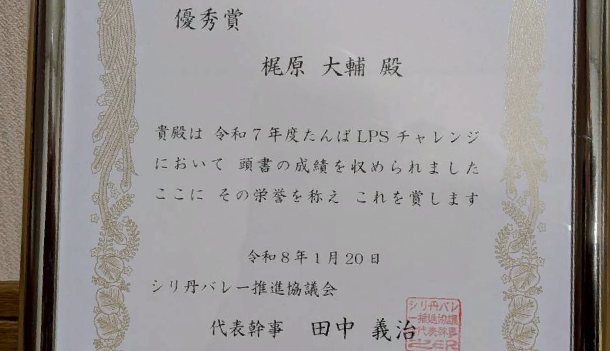 優秀賞
梶原 大輔 殿
貴殿は 令和7年度たんばLPSチャレンジ
において 頭書の成績を収められました
ここに その栄誉を称え これを賞します
令和8年1月20日
シリ丹バレー推進協議会
代表幹事 田中 義治
シリ丹バレ
ー推進協議
代表幹事